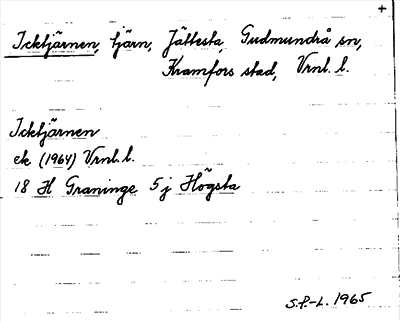 +
Icktjärnen, tjärn, Jättesta, Gudmundrå sn,
Kramfors stad, Vrnl. l.
Icktjärnen
ek. (1964) Vrnl. l.
18 H Graninge 5j Högsta
S.P.-L. 1965